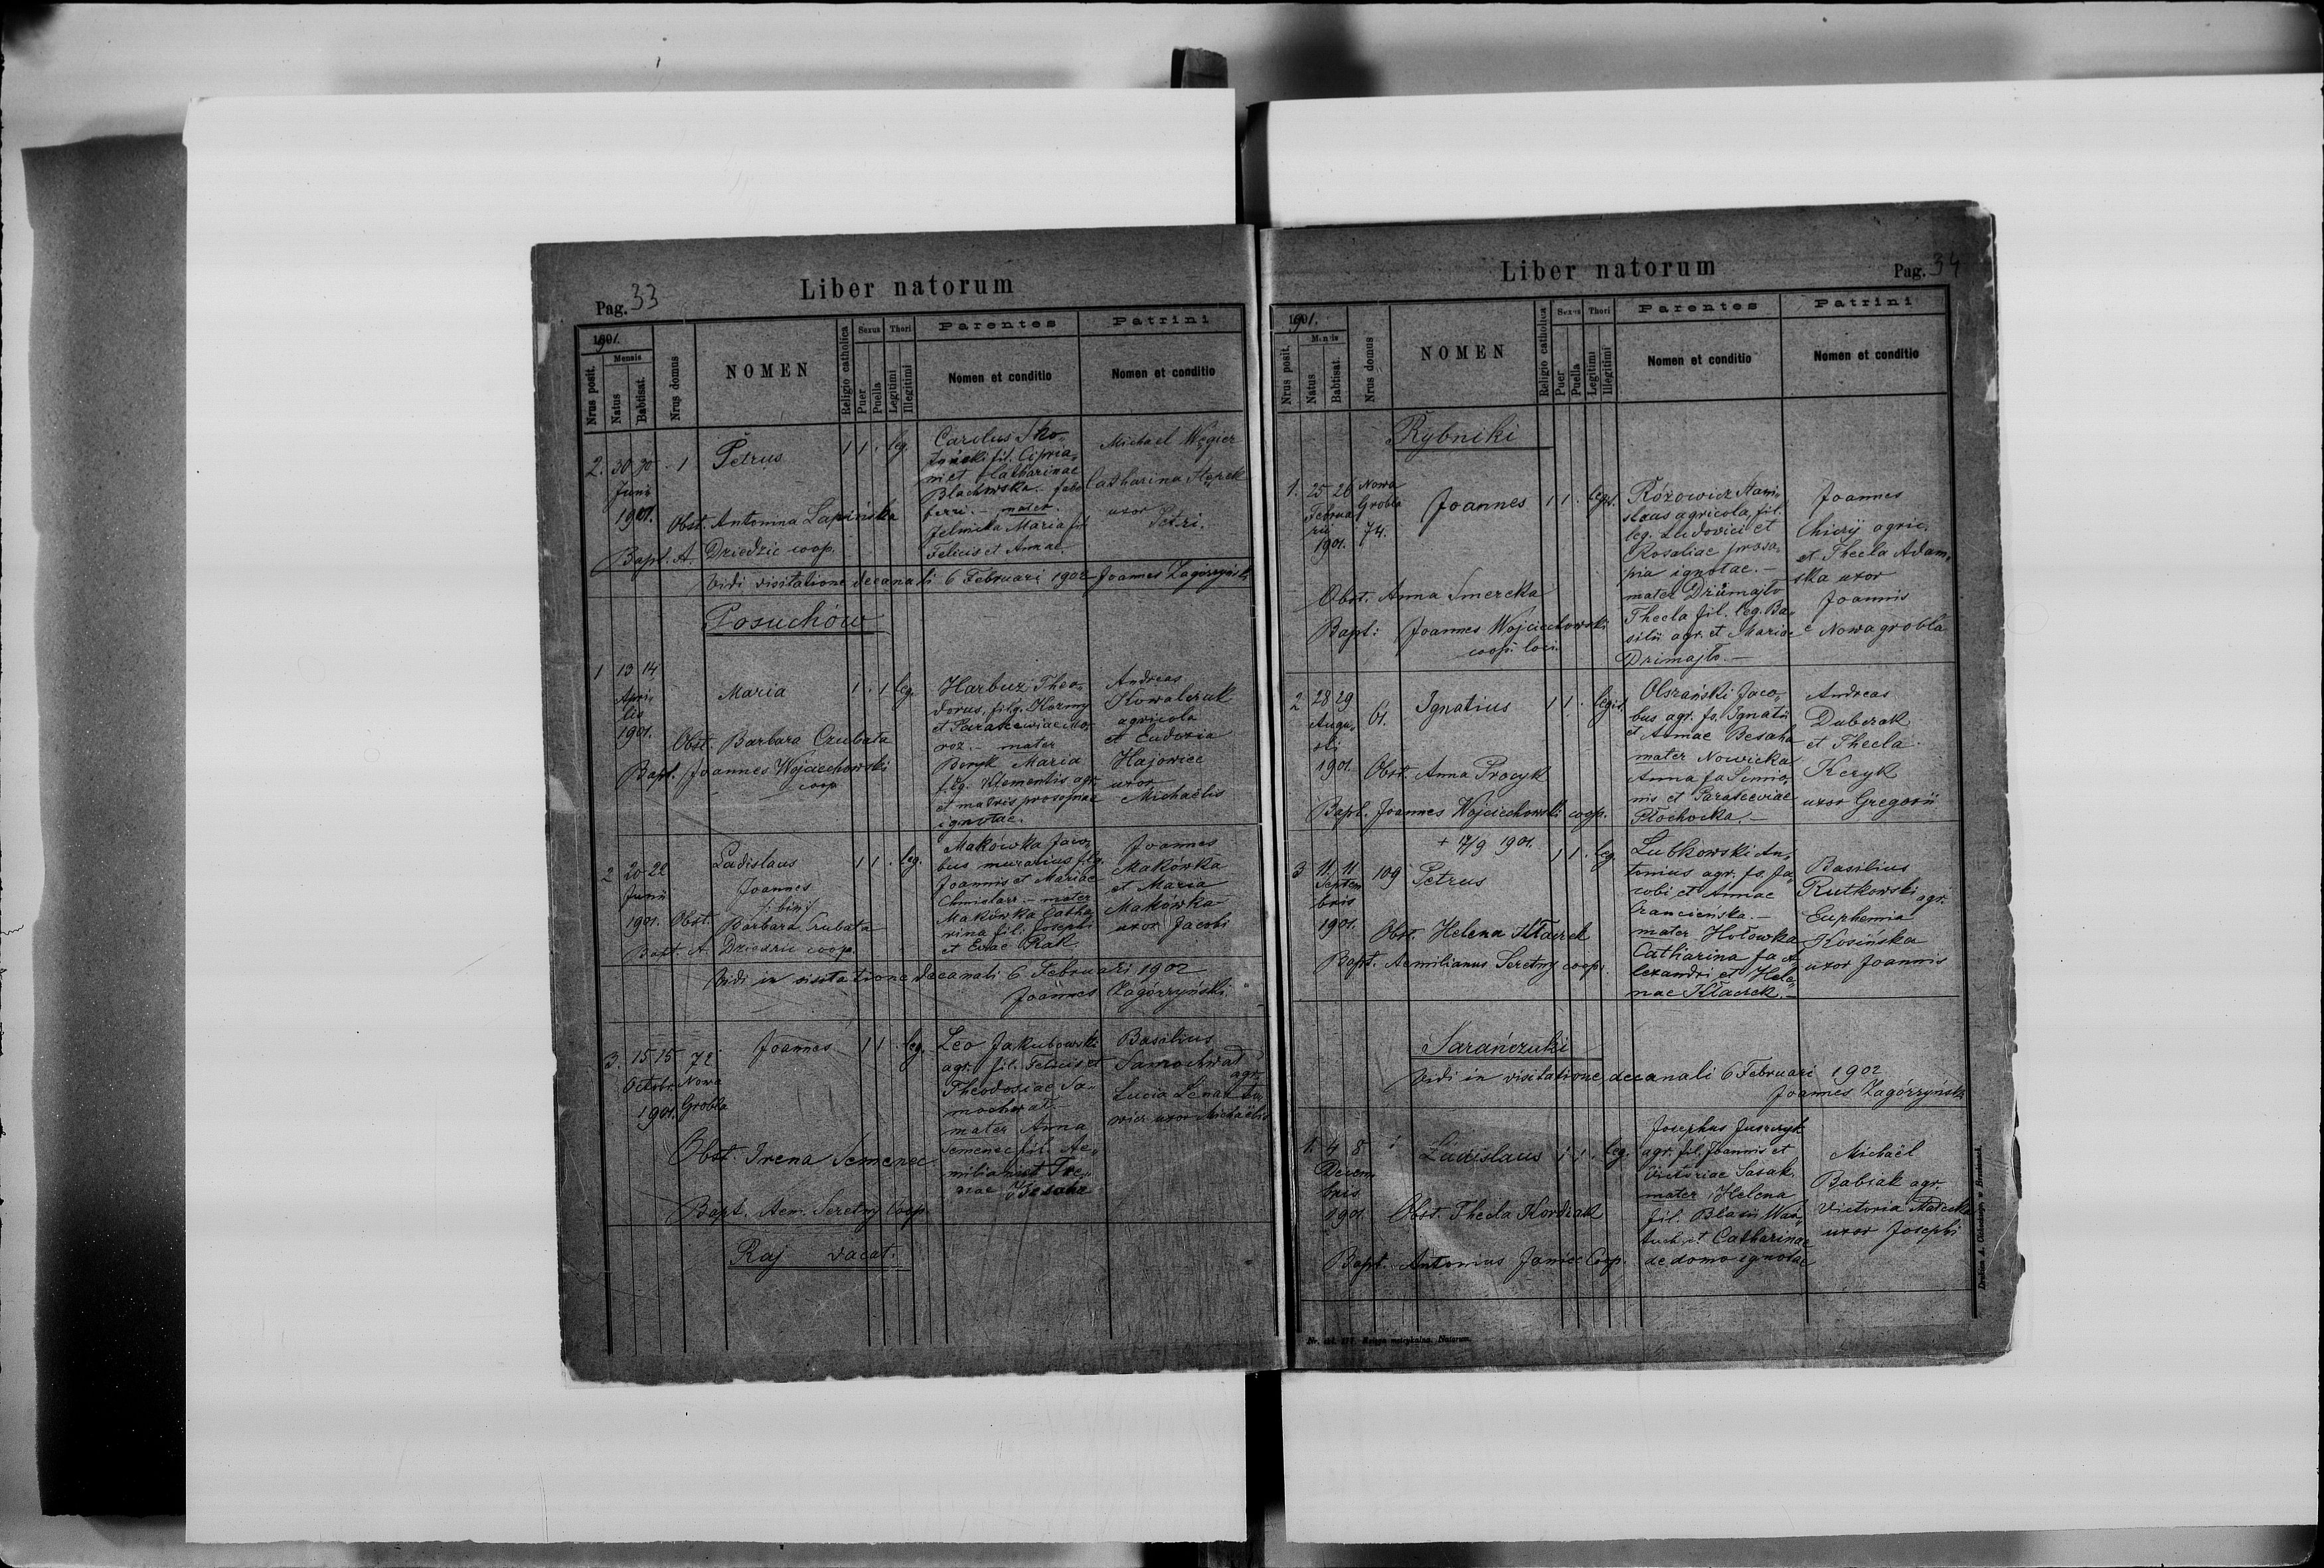 Pag. 33
Liber natorum
1901.
Nrus posit.
Mensis
Natus
Babtisat.
Nrus domus
NOMEN
Religio catholica
Sexus
Puer
Puella
Thori
Legitimi
Illegitimi
Parentes
Nomen et conditio
Patrini
Nomen et conditio
2. 30 30 1 Petrus 1 1 . leg.
Junii
1901.
Obst. Antonina Lapińska
Bapt. A. Dziedzic coop.
Carolus
fil. Cipria-
ni et Catharinae
faber
ferri. - mater
Maria fil.
Felicis et Annae
Michael Węgier
Catharina
uxor
Petri.
Vidi visitatione decanali 6 Februari 1902 Joannes Zagórzyński
Posuchów
1 13 14 Maria 1 . 1 leg.
Apri-
lis
1901.
Obst. Barbara Czubata
Bapt. Joannes Wojciechowski
coop.
Harbuz Theo-
dorus, fil.
et Parascewiae
mater
Maria
Klementis agr.
et matris prosapiae
ignotae.
Andreas
Kowalczuk
agricola
et Eudoxia
Hajowice
uxor
Michaëlis
2 20 22 Ladislaus 1 1 . leg.
Joannes
Junii
1901. Obst. Barbara Czubata
Bapt. A. Dziedzic coop.
Makówka Jaco-
bus murarius
Joannis et Mariae
mater
Makówka Catha-
rina fil. Josephi
et Evae Rak
Joannes
Makówka
et Maria
Makówka
uxor Jacobi
Vidi in visitatione decanali 6 Februari 1902
Joannes Zagórzyński
3. 15 15 72 Joannes 1 1 . leg.
Octobr. Nowa
1901. Grobla
Obst. Irena Semenec
Bapt. Aem. Seretny Coop.
Leo Jakubowski
agr. fil. Felicis et
Theodosiae Sa-
mochwał
mater Anna
Semenec fil. Ae-
miliani et Ire-
nae Besaha
Basilius
Samochwał
agr.
Lucia
uxor Michaëlis
Raj vacat.
Liber natorum
Pag. 34
1901.
Nrus posit.
Mensis
Natus
Babtisat.
Nrus domus
NOMEN
Religio catholica
Sexus
Puer
Puella
Thori
Legitimi
Illegitimi
Parentes
Nomen et conditio
Patrini
Nomen et conditio
Rybniki
1. 25 26 Nowa Joannes 1 1 . legit.
Februa- Grobla
rii 74.
1901.
Obst. Anna Smereka
Bapt: Joannes Wojciechowski
coop. loci
Rózowicz Stani-
slaus agricola, fil.
leg. Ludovici et
Rosaliae prosa-
pia ignotae. -
mater Drimajło
Thecla fil. leg. Ba-
silii agr. et Mariae
Drimajło. -
Joannes
agric.
et Thecla Adam-
ska uxor
Joannis
e Nowagrobla
2 28 29 61. Ignatius 1 1 . legit.
Augu-
sti
1901
Obst. Anna Procyk
Bapt. Joannes Wojciechowski coop.
Olszański Jaco-
bus agr. fs. Ignatii
et Annae Besaha
mater Nowicka
Anna fa Simio-
nis et Parasceviae
Płochocka. -
Andreas
Dubczak
et Thecla
Keryk
uxor Gregorii
+ 17/9 1901.
3 11 11 109 Petrus 1 1 . leg.
Septem-
bris
1901.
Obst. Helena Kłaczek
Bapt. Aemilianus Seretny coop.
Lubkowski An-
tonius agr. fs. Ja-
cobi et Annae
mater Hołowka
Catharina fa A-
lexandri et Hele-
nae Kłaczek. -
Basilius
Rutkowski agr.
Euphemia
Kosińska
uxor Joannis
Sarańczuki
Vidi in visitatione decanali 6 Februari 1902
Joannes Zagórzyński
1. 4 8 Ladislaus 1 1 . leg.
Decem-
bris
1901 Obst. Thecla Kordzak
Bapt. Antonius Janiec Coop.
Josephus Juszczyk
agr. fil. Joannis et
Victoriae Sasak
mater Helena
fil. Blasii
et Catharinae
de domo ignotae
Michaël
Babiak agr.
Victoria
uxor Josephi